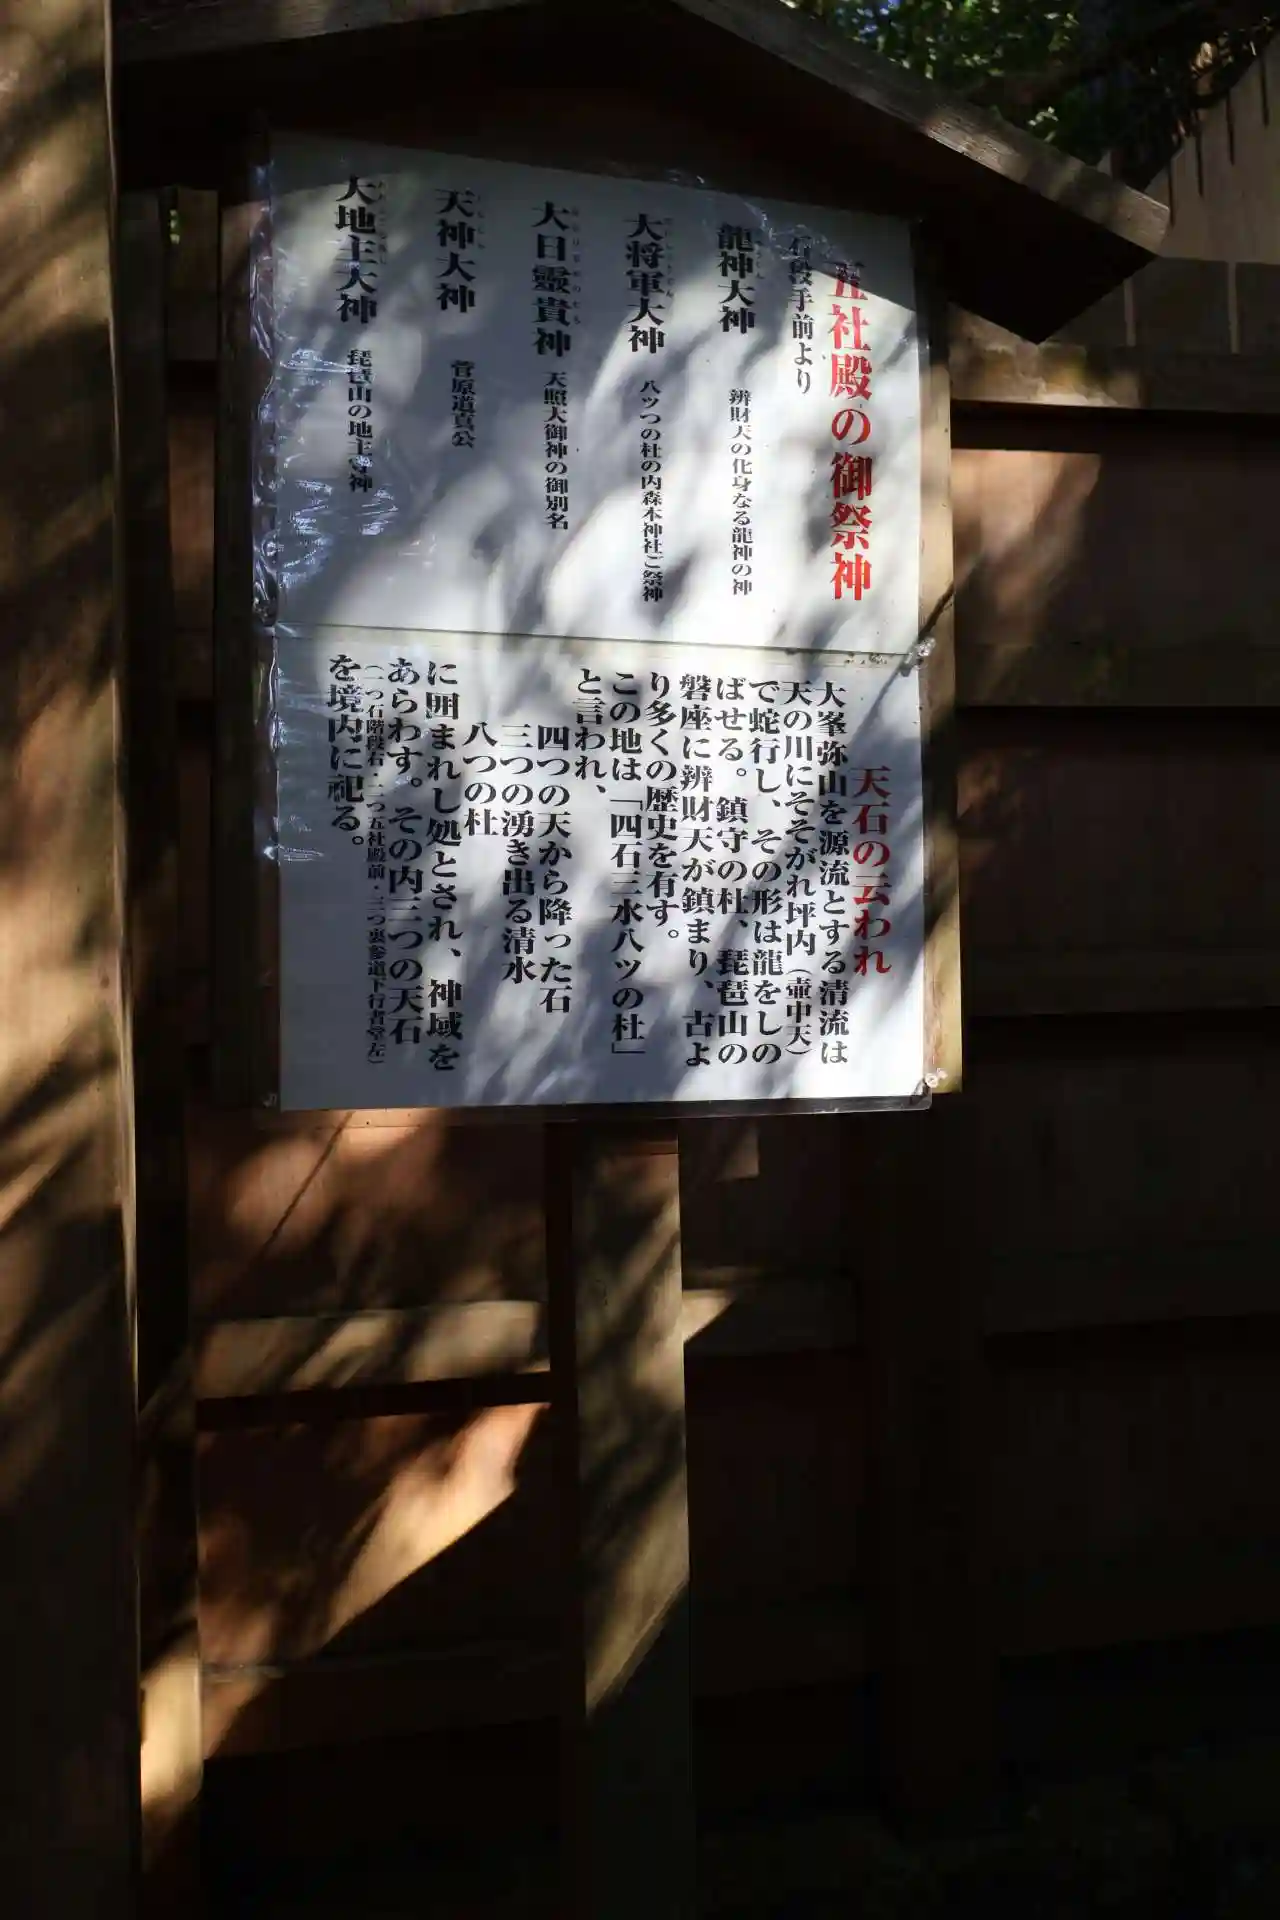 五社殿の御祭神
石段手前より
龍神大神 辨財天の化身なる龍神の神
大将軍大神 八ツつの杜の内森本神社ご祭神
大日靈貴神 天照大御神の御別名
天神大神 菅原道真公
大地主大神 琵琶山の地主守神
天石の云われ
大峯弥山を源流とする清流は
天の川にそそがれ坪内（壷中天）
で蛇行し、その形は龍をしの
ばせる。鎮守の杜、琵琶山の
磐座に辨財天が鎮まり、古よ
り多くの歴史を有す。
この地は「四石三水八ツの杜」
と言われ、
四つの天から降った石
三つの湧き出る清水
八つの杜
に囲まれし処とされ、神域を
あらわす。その内三つの天石
（一つ石階段右・二つ五社殿前・三つ裏参道下行者堂左）
を境内に祀る。